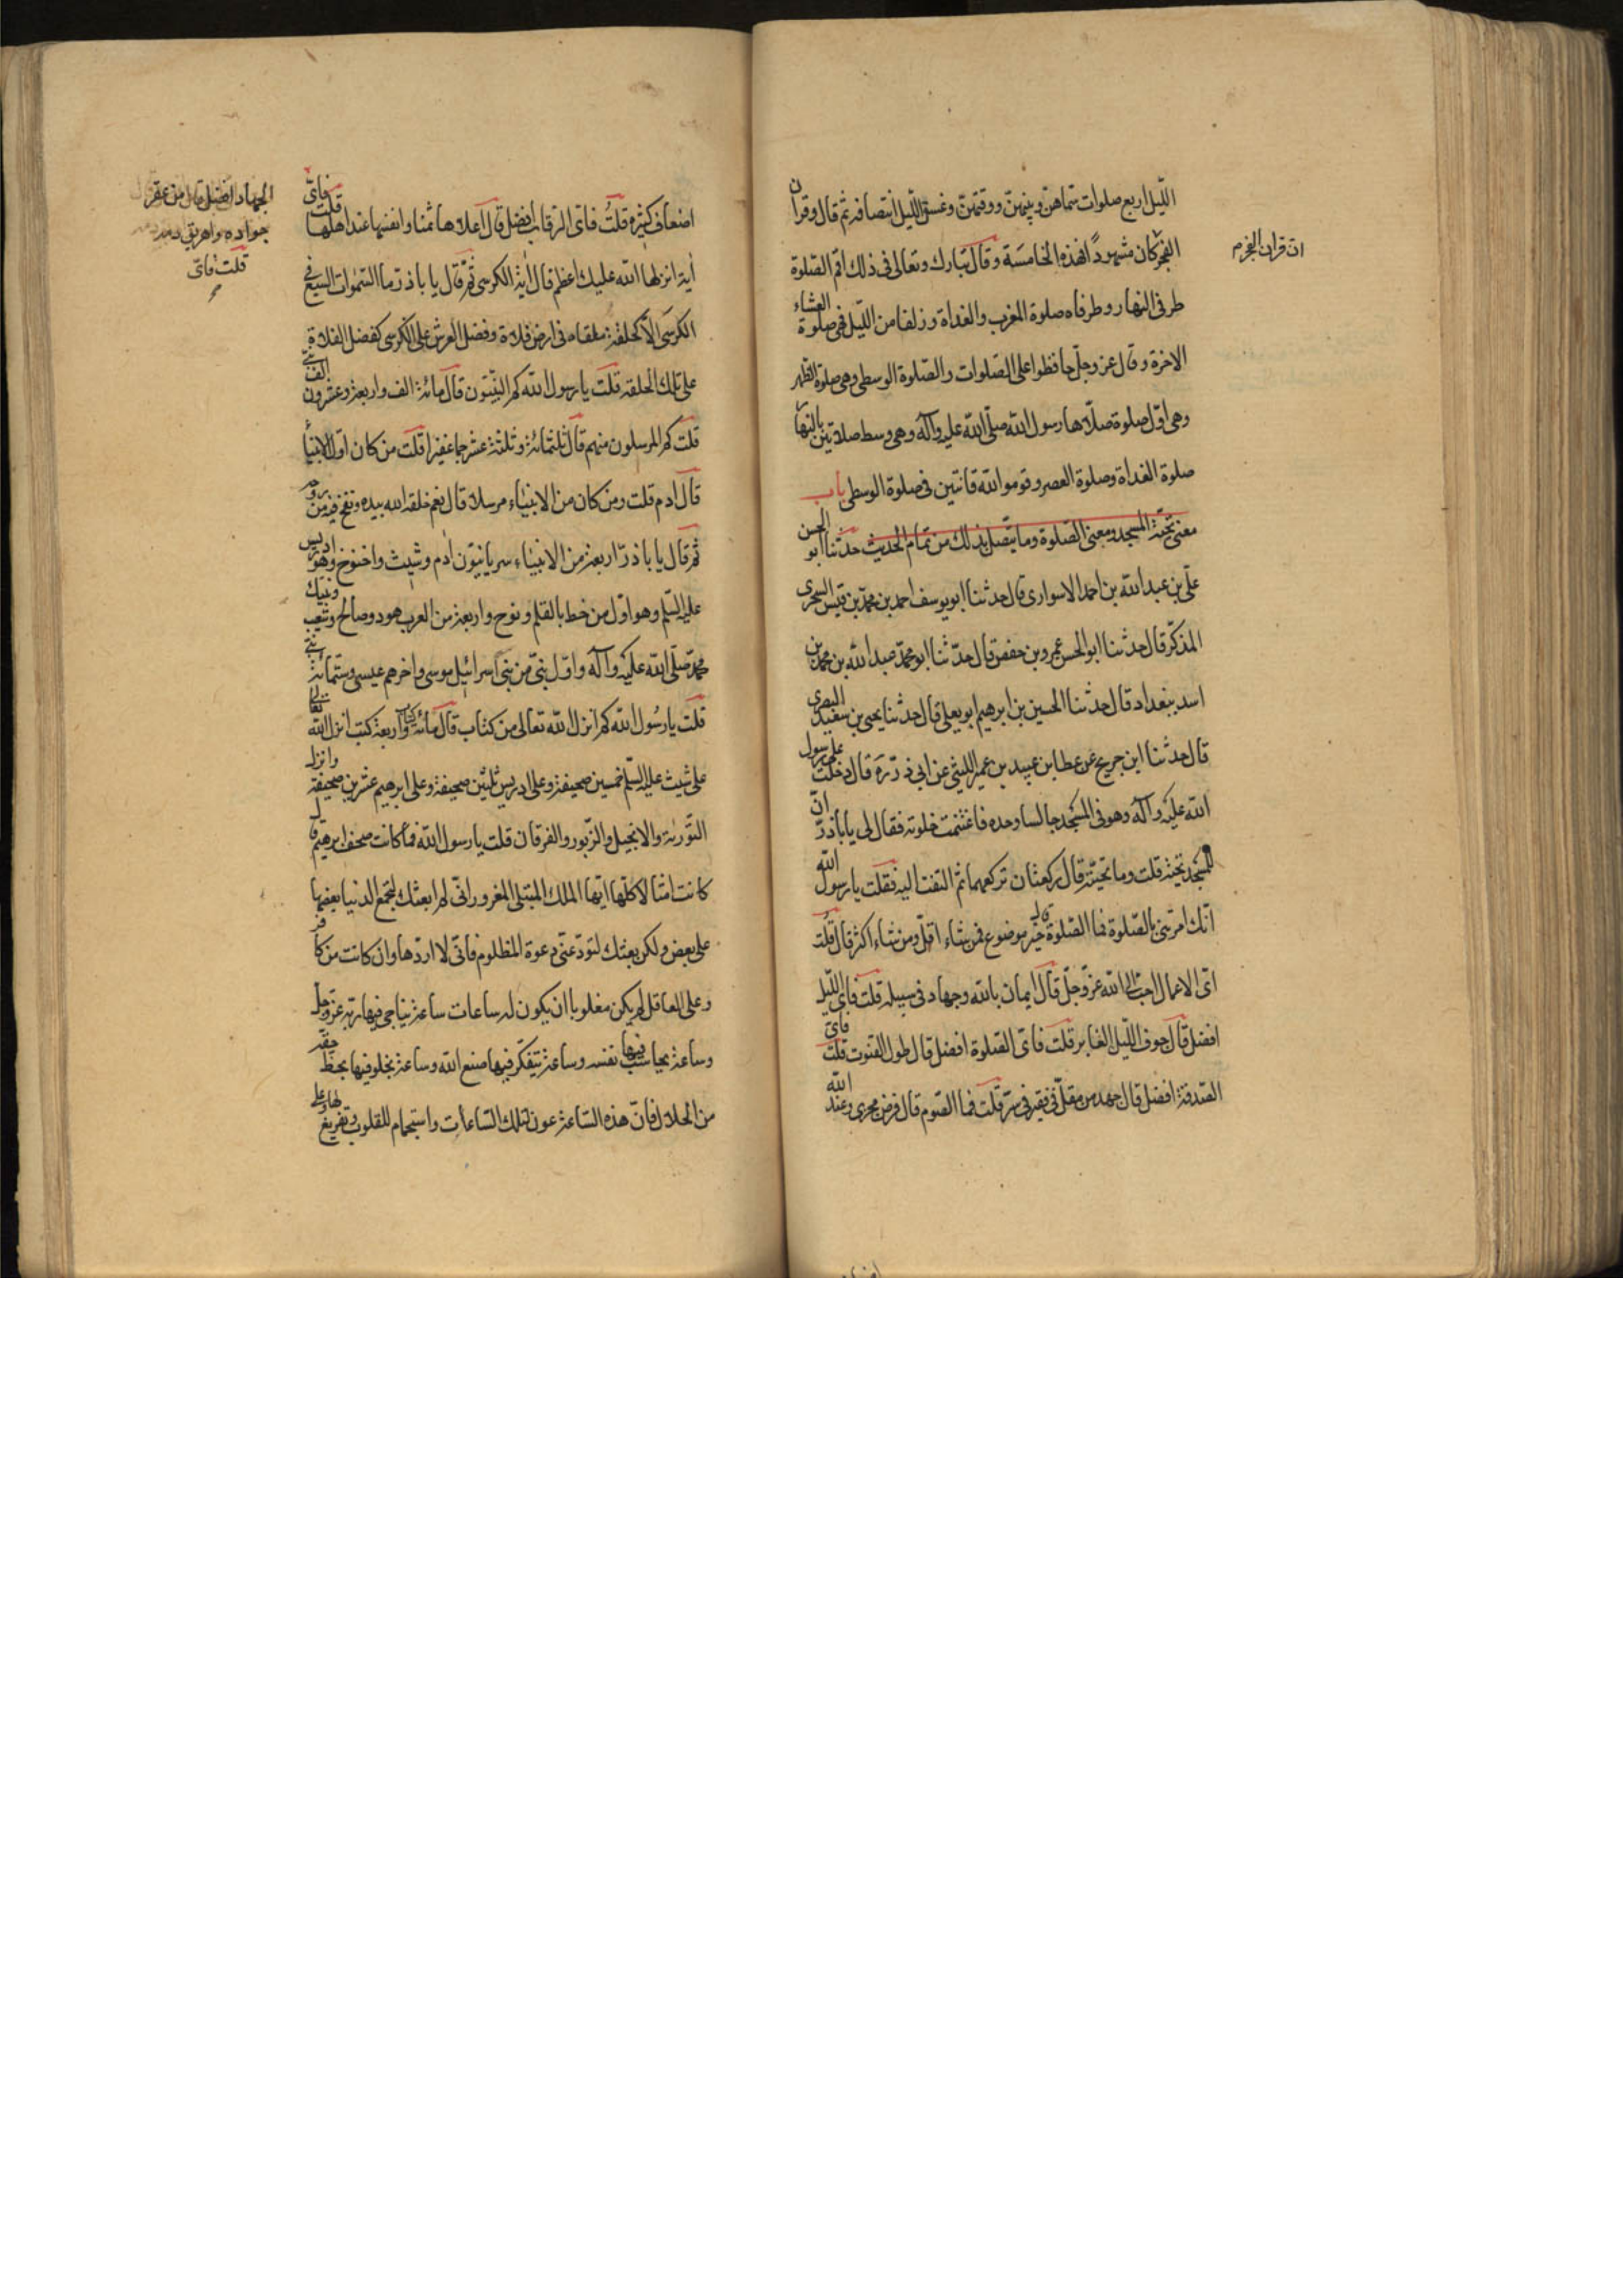 الليل اربع صلوات سماهن وبينهن ووقتهن وغسق الليل انتصافه ثم قال وقران
الفجر كان مشهوداً فهذه الخامسة وقال تبارك وتعالى فى ذلك اقم الصلوة
ان قران الفجر م
طرفى النهار وطرفاه صلوة المغرب والغداة وزلفا من الليل فهى صلوة العشاء
الاخرة وقال عز وجل حافظوا على الصلوات والصلوة الوسطى وهى صلوة الظهر
وهى اول صلوة صلاها رسول الله صلى الله عليه وآله وهى وسط صلاتين بالنهار
صلوة الغداة وصلوة العصر وقوموا لله قانتين فى صلوة الوسطى باب
معنى تحية المسجد ومعنى الصلوة وما يتصل بذلك من تمام الحديث حدثنا ابو الحسن
على بن عبد الله بن احمد الاسوارى قال حدثنا ابو يوسف احمد بن محمد بن قيس السجزى
المذكر قال حدثنا ابو الحسن عمرو بن حفص قال حدثنا ابو محمد عبد الله بن محمد بن
اسد ببغداد قال حدثنا الحسين بن ابرهيم ابو يعلى قال حدثنا يحيى بن سعيد البصرى
قال حدثنا ابن جريج عن عطا بن عبيد بن عمير الليثى عن ابى ذر ره قال دخلت على رسول
الله عليه وآله وهو فى المسجد جالسا وحده فاغتنمت خلوته فقال لى يا باذر ان
للمسجد تحية قلت وما تحيته قال ركعتان تركعهما ثم التفت اليه فقلت يا رسول الله
انك امرتنى بالصلوة فما الصلوة قال خير موضوع فمن شاء اقل ومن شاء اكثر قال قلت
اى الاعمال احب الى الله عز وجل قال ايمان بالله وجهاد فى سبيله قلت فاى الليل
افضل قال جوف الليل الغابر قلت فاى الصلوة افضل قال طول القنوت قلت فاى
الصدقة افضل قال جهد من مقل فى فقير فى سر قلت فما الصوم قال فرض مجزى وعند الله
اضعاف كثيره قلت فاى الرقاب افضل قال اعلاها ثمنا وانفسها عند اهلها قلت فاى
الجهاد افضل قال من عقر
جواده واهريق دمه
قلت فاى
اية انزلها الله عليك اعظم قال اية الكرسى ثم قال يا باذر ما السموات السبع فى
الكرسى الا كحلقة ملقاه فى ارض فلاة وفضل العرش على الكرسى كفضل الفلاة
على تلك الحلقه قلت يا رسول الله كم النبيون قال مائة الف واربعة وعشرون الف نبى
قلت كم المرسلون منهم قال ثلثمائة وثلثة عشر جما غفيرا قلت من كان اول الانبيأ
قال ادم قلت ومن كان من الانبياء مرسلا قال نعم خلقه الله بيده ونفخ فيه من روحه
ثم قال يا باذر اربعة من الانبياء سريانيون ادم وشيث واخنوخ وهو ادريس
عليه السلم وهو اول من خط بالقلم ونوح واربعة من العرب هود وصالح وشعيب ونبيك
محمد صلى الله عليه وآله واول نبى من بنى اسرائيل موسى واخرهم عيسى وستمائة نبى
قلت يا رسول الله كم انزل الله تعالى من كتاب قال مائة كتاب واربعة كتب انزل الله تعالى
على شيث عليه السلم خمسين صحيفة وعلى ادريس ثلثين صحيفة وعلى ابرهيم عشرين صحيفة وانزل
التورية والانجيل والزبور والفرقان قلت يا رسول الله فما كانت صحف ابرهيم قال
كانت امثالا كلها ايها الملك المبتلى المغرور انى لم ابعثك لتجمع الدنيا بعضها
على بعض ولكن بعثتك لترد عنى دعوة المظلوم فانى لا اردها وان كانت من كافر
وعلى العاقل لم يكن مغلوبا ان يكون له ساعات ساعة يناجى فيها ربه عز وجل
وساعة يحاسب فيها نفسه وساعة يتفكر فيها صنع الله وساعة يخلو فيها بحظ
من الحلال فان هذه الساعة عون لتلك الساعات واستجمام للقلوب وتفريغ لها وعلى